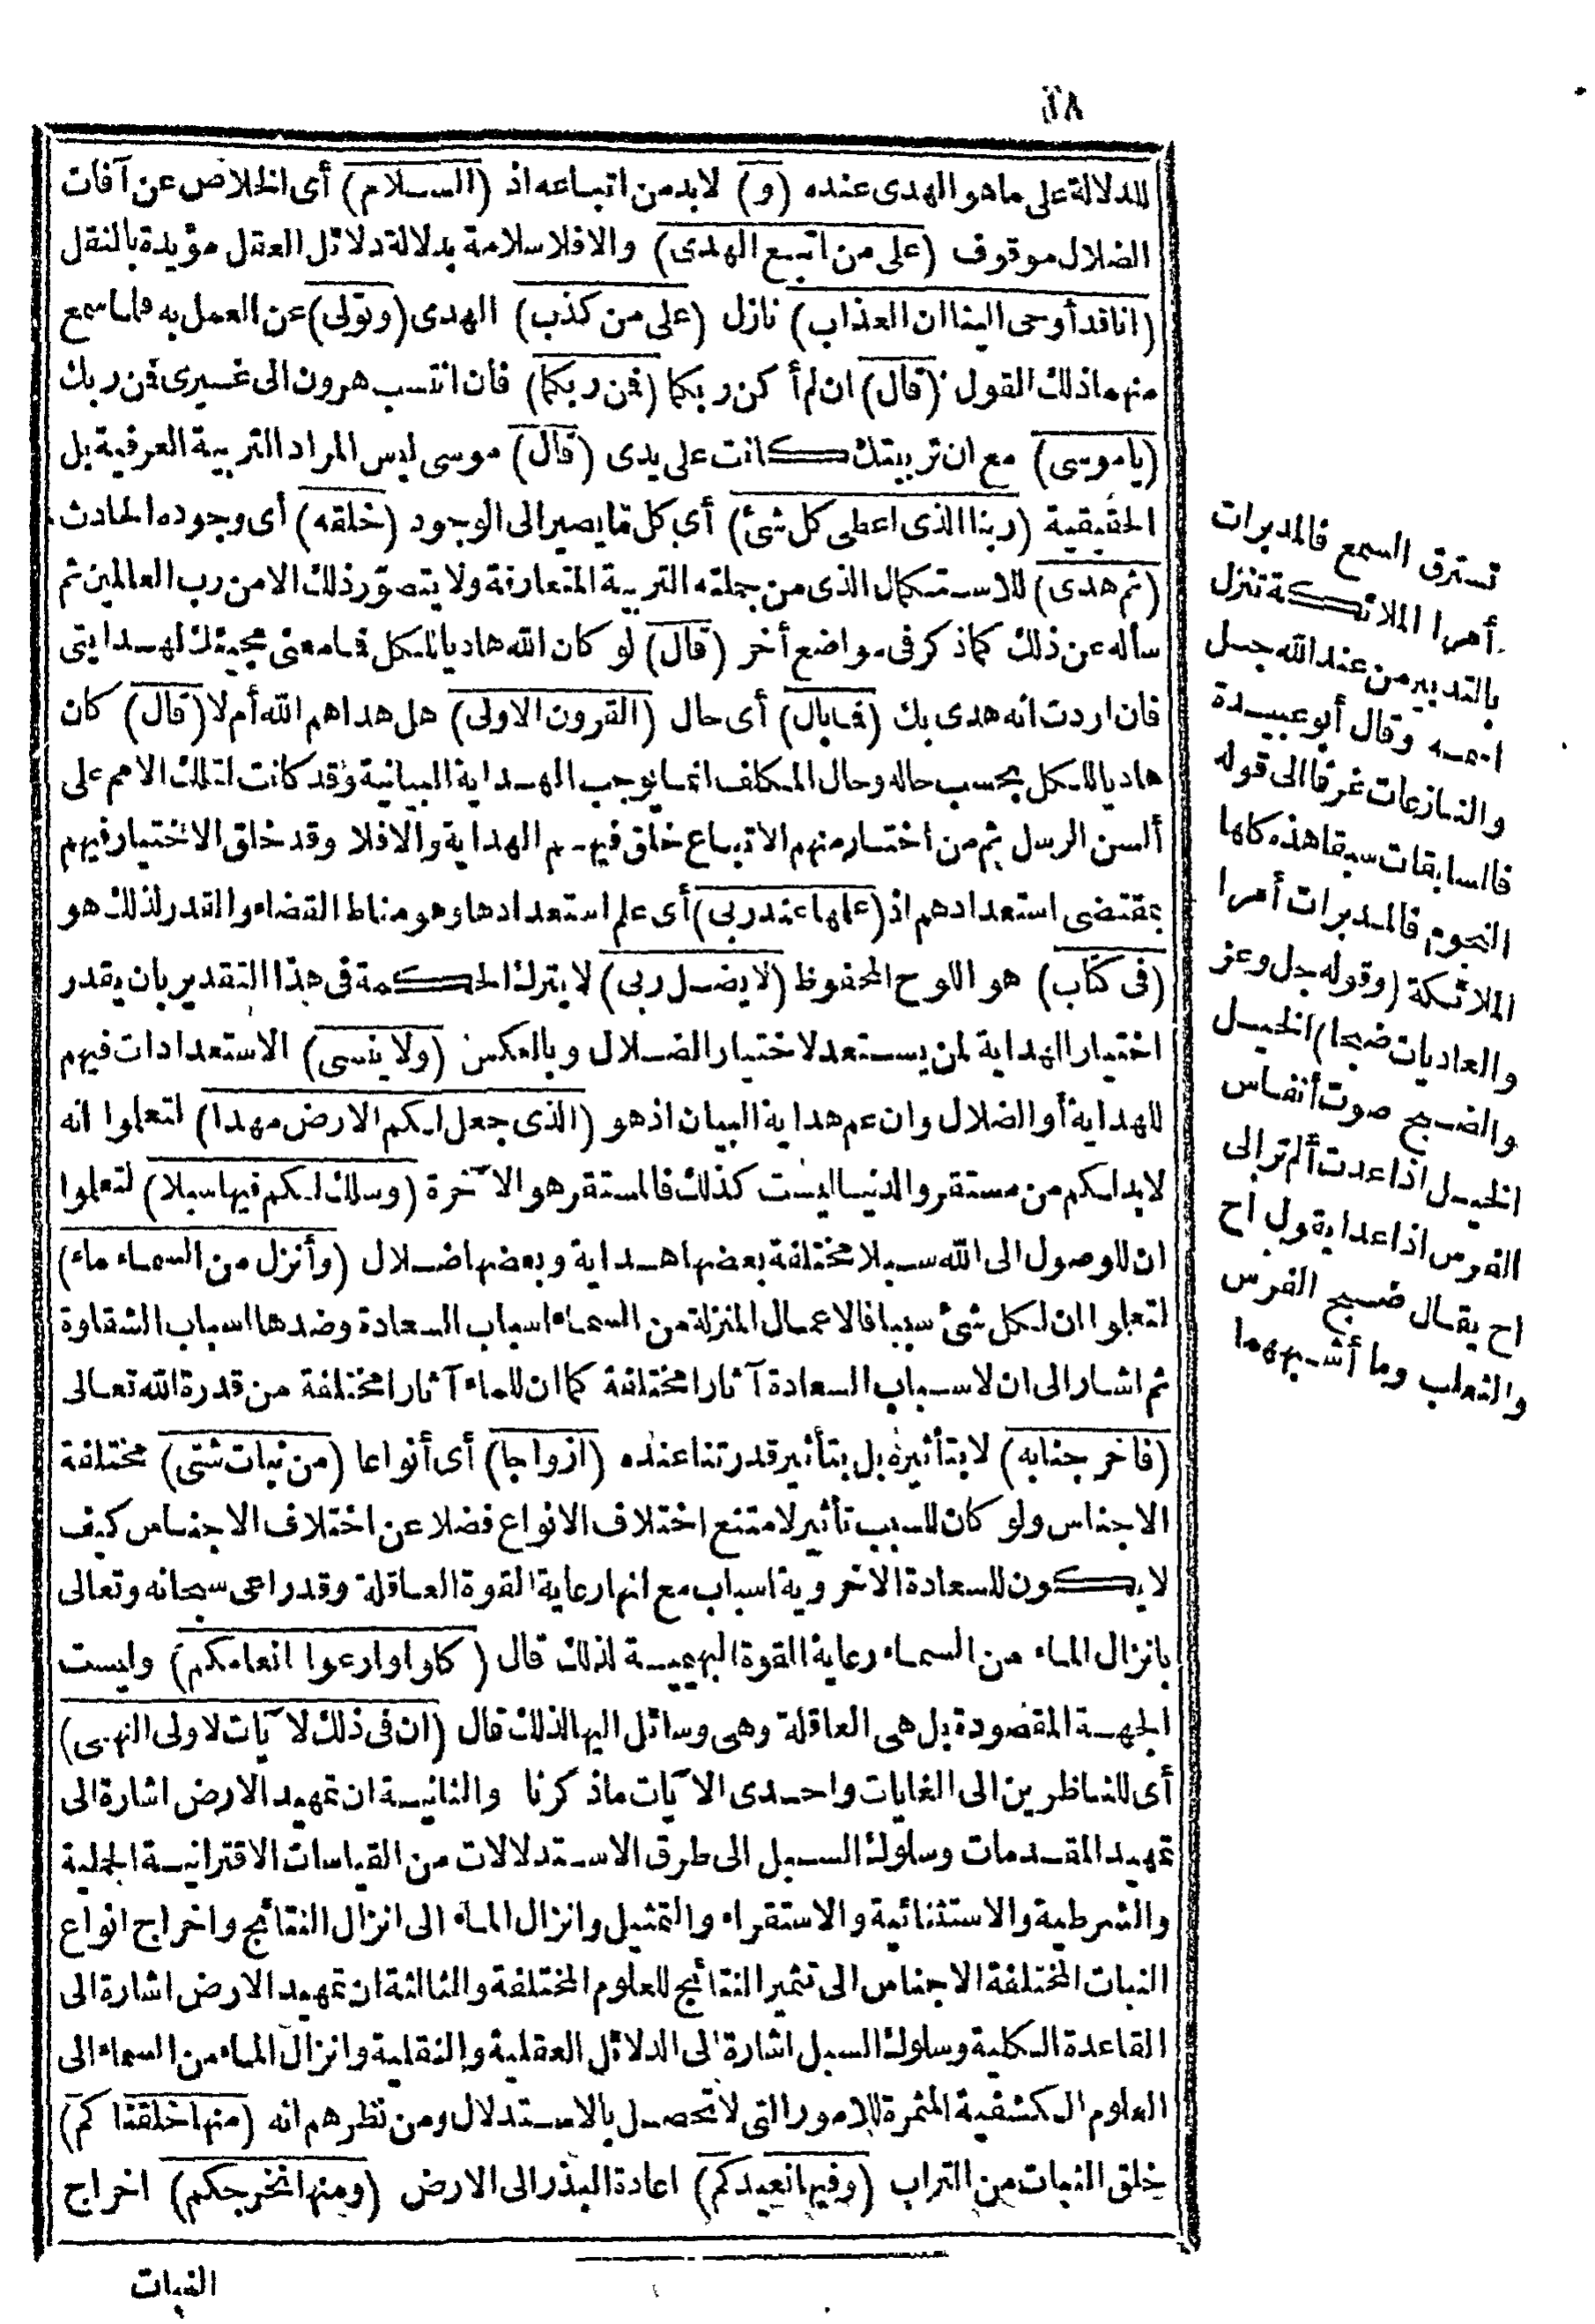 ١٨
للدلالة على ما هو الهدى عنده (و) لابد من اتباعه اذ (السلام) أى الخلاص عن آفات
الضلال موقوف (على من اتبع الهدى) والا فلا سلامة بدلالة دلائل العقل مؤيدة بالنقل
(انا قد أوحى الينا ان العذاب) نازل (على من كذب) الهدى (وتولى) عن العمل به فلما سمع
منهما ذلك القول (قال) ان لم أكن ربكما (فمن ربكما) فان انتسب هرون الى غيرى فمن ربك
(يا موسى) مع ان تربيتك كانت على يدى (قال) موسى ليس المراد التربية العرفية بل
الحقيقية (ربنا الذى اعطى كل شئ) أى كل ما يصير الى الوجود (خلقه) أى وجوده الحادث
(ثم هدى) للاستكمال الذى من جملته التربية المتعارفة ولا يتصوّر ذلك الا من رب العالمين ثم
سأله عن ذلك كما ذكر فى مواضع أخر (قال) لو كان الله هاديا للكل فما معنى مجيئك لهدايتى
فان اردت انه هدى بك (فما بال) أى حال (القرون الاولى) هل هداهم الله أم لا (قال) كان
هاديا للكل بحسب حاله وحال المكلف انما يوجب الهداية البيانية وقد كانت لتلك الامم على
ألسن الرسل ثم من اختار منهم الاتباع خلق فيهم الهداية والا فلا وقد خلق الاختيار فيهم
بمقتضى استعدادهم اذ (علمها عند ربى) أى علم استعدادها وهو مناط القضاء والقدر لذلك هو
(فى كتاب) هو اللوح المحفوظ (لا يضل ربى) لا يترك الحكمة فى هذا التقدير بان يقدر
اختيار الهداية لمن يستعد لاختيار الضلال وبالعكس (ولا ينسى) الاستعدادات فيهم
للهداية أو الضلال وان عم هداية البيان اذ هو (الذى جعل لكم الارض مهدا) لتعلموا انه
لا بد لكم من مستقر والدنيا ليست كذلك فالمستقر هو الآخرة (وسلك لكم فيها سبلا) لتعلموا
ان للوصول الى الله سبلا مختلفة بعضها هداية وبعضها ضلال (وأنزل من السماء ماء)
لتعلموا ان لكل شئ سببا فالاعمال المنزلة من السماء اسباب السعادة وضدها اسباب الشقاوة
ثم اشار الى ان لاسباب السعادة آثارا مختلفة كما ان للماء آثارا مختلفة من قدرة الله تعالى
(فاخرجنا به) لا بتأثيره بل بتأثير قدرتنا عنده (ازواجا) أى أنواعا (من نبات شتى) مختلفة
الاجناس ولو كان للسبب تأثير لامتنع اختلاف الانواع فضلا عن اختلاف الاجناس كيف
لا يكون للسعادة الاخروية اسباب مع انها رعاية القوة العاقلة وقد راعى سبحانه وتعالى
بانزال الماء من السماء رعاية القوة البهيمية لذلك قال (كلوا وارعوا انعامكم) وليست
الجهة المقصودة بل هى العاقلة وهى وسائل اليها لذلك قال (ان فى ذلك لآيات لاولى النهى)
أى للناظرين الى الغايات واحدى الآيات ما ذكرنا والثانية ان تمهيد الارض اشارة الى
تمهيد المقدمات وسلوك السبل الى طرق الاستدلالات من القياسات الاقترانية الحملية
والشرطية والاستثنائية والاستقراء والتمثيل وانزال الماء الى انزال النتائج واخراج انواع
النبات المختلفة الاجناس الى تثمير النتائج للعلوم المختلفة والثالثة ان تمهيد الارض اشارة الى
القاعدة الكلية وسلوك السبل اشارة الى الدلائل العقلية والنقلية وانزال الماء من السماء الى
العلوم الكشفية المثمرة للامور التى لا تحصل بالاستدلال ومن نظرهم انه (منها خلقناكم)
خلق النبات من التراب (وفيها نعيدكم) اعادة البذر الى الارض (ومنها نخرجكم) اخراج
النبات
تسترق السمع فالمدبرات
أمرا الملائكة تنزل
بالتدبير من عند الله جل
اسمه وقال أبو عبيدة
والنازعات غرقا الى قوله
فالسابقات سبقا هذه كلها
النجوم فالمدبرات أمرا
الملائكة (وقوله جل وعز
والعاديات ضبحا) الخيل
والضبح صوت أنفاس
الخيل اذا عدت ألم تر الى
الفرس اذا عدا يقول اح
اح يقال ضبح الفرس
والثعلب وما أشبههما